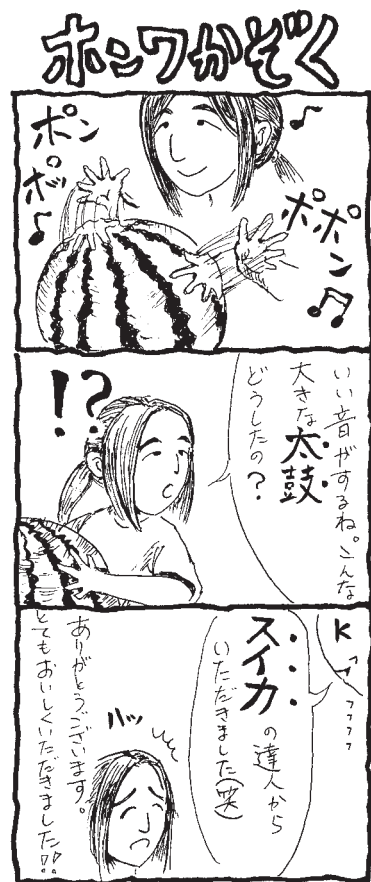 ホンワかぞく
ポン
ポッ♪
♪
ポポン
♫
いい音がするね。こんな
大きな太鼓
どうしたの？
!?
K
スイカの達人から
いただきました(笑)
ハッ
ありがとうございます。
とてもおいしくいただきました!!